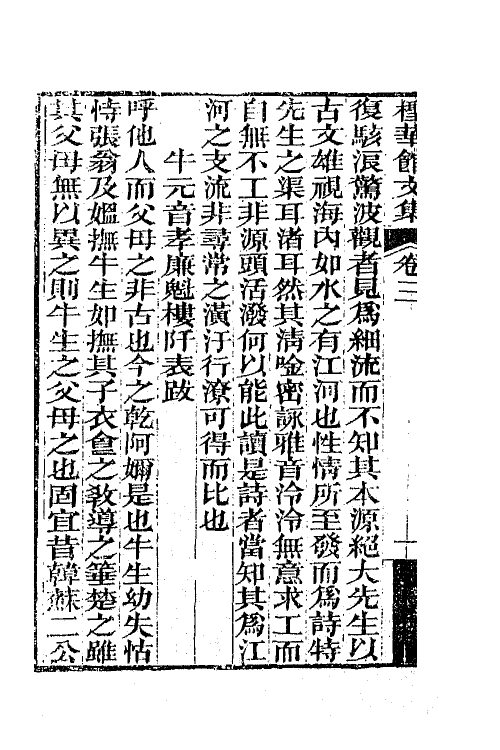 檉華館文集
卷三
復駭浪驚波觀者見爲細流而不知其本源絕大先生以
古文雄視海內如水之有江河也性情所至發而爲詩特
先生之渠耳渚耳然其淸唫密詠雅音泠泠無意求工而
自無不工非源頭活潑何以能此讀是詩者當知其爲江
河之支流非尋常之潢汙行潦可得而比也
牛元音孝廉魁樓阡表跋
呼他人而父母之非古也今之乾阿嬭是也牛生幼失怙
恃張翁及媼撫牛生如撫其子衣食之敎導之箠楚之雖
其父母無以異之則牛生之父母之也固宜昔韓蘇二公